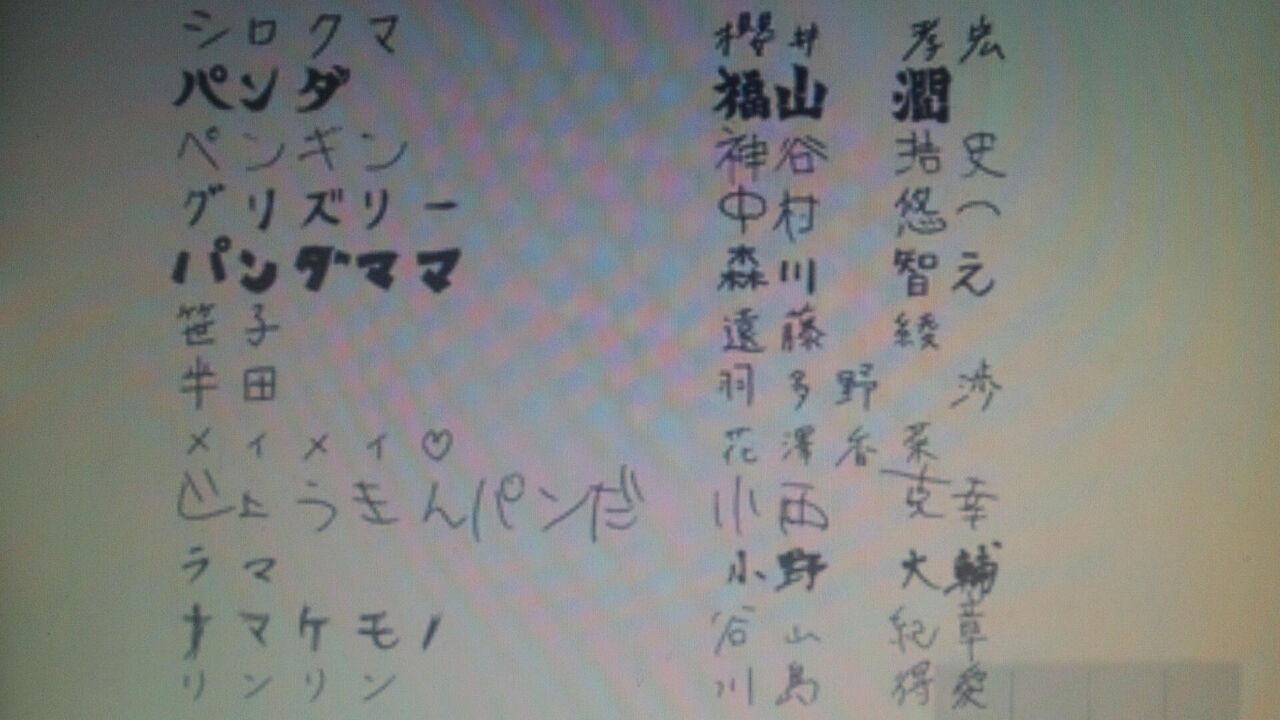 シロクマ 櫻井 孝宏
パンダ 福山 潤
ペンギン 神谷 浩史
グリズリー 中村 悠一
パンダママ 森川 智之
笹子 遠藤 綾
半田 羽多野 渉
メイメイ♡ 花澤香菜
じょうきんパンだ 小西 克幸
ラマ 小野 大輔
ナマケモノ 谷山 紀章
リンリン 川島 得愛